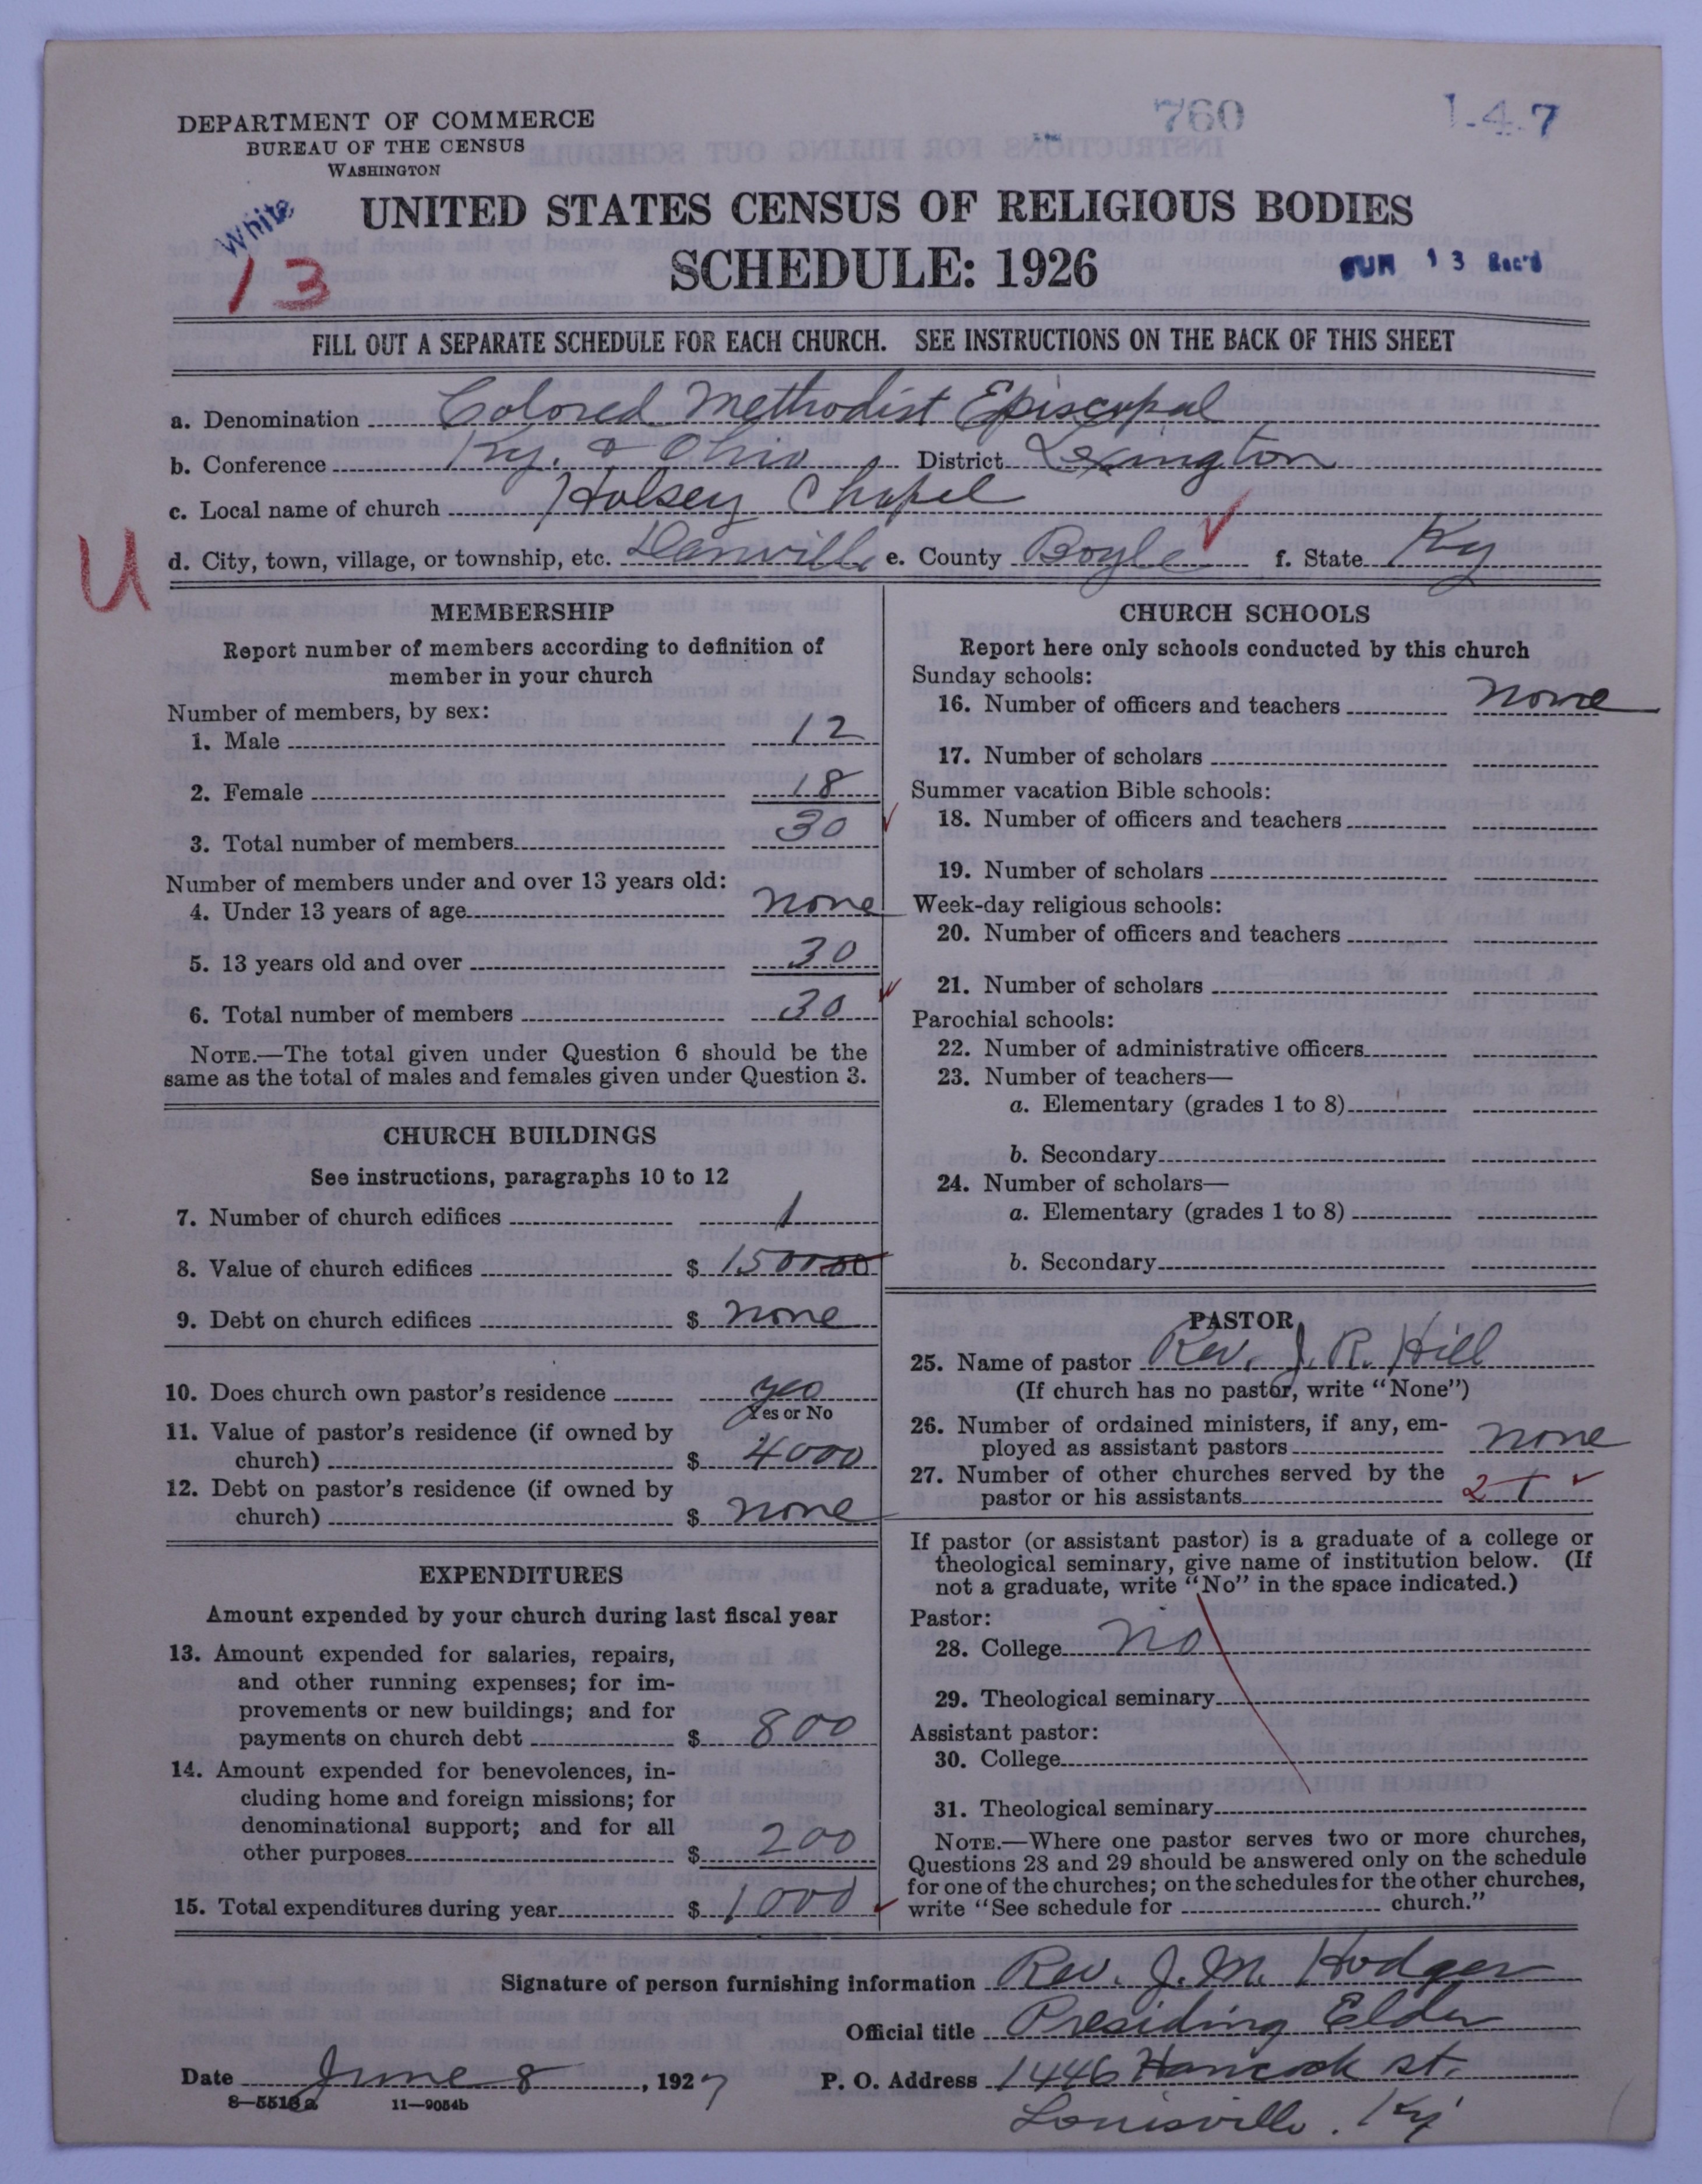 DEPARTMENT OF COMMERCE
BUREAU OF THE CENSUS
WASHINGTON
760
1-4-7
White
13
UNITED STATES CENSUS OF RELIGIOUS BODIES
SCHEDULE: 1926
JUN 13 Rec'd
FILL OUT A SEPARATE SCHEDULE FOR EACH CHURCH. SEE INSTRUCTIONS ON THE BACK OF THIS SHEET
a. Denomination Colored Methodist Episcopal
b. Conference Ky. & Ohio District Lexington
c. Local name of church Holsey Chapel
U
d. City, town, village, or township, etc. Danville e. County Boyle f. State Ky
MEMBERSHIP
Report number of members according to definition of
member in your church
Number of members, by sex:
1. Male 12
2. Female 18
3. Total number of members 30
Number of members under and over 13 years old:
4. Under 13 years of age none
5. 13 years old and over 30
6. Total number of members 30
NOTE.—The total given under Question 6 should be the
same as the total of males and females given under Question 3.
CHURCH BUILDINGS
See instructions, paragraphs 10 to 12
7. Number of church edifices 1
8. Value of church edifices $ 150000
9. Debt on church edifices $ none
10. Does church own pastor's residence yes
Yes or No
11. Value of pastor's residence (if owned by
church) $ 4000
12. Debt on pastor's residence (if owned by
church) $ none
EXPENDITURES
Amount expended by your church during last fiscal year
13. Amount expended for salaries, repairs,
and other running expenses; for im-
provements or new buildings; and for
payments on church debt $ 800
14. Amount expended for benevolences, in-
cluding home and foreign missions; for
denominational support; and for all
other purposes $ 200
15. Total expenditures during year $ 1000
CHURCH SCHOOLS
Report here only schools conducted by this church
Sunday schools:
16. Number of officers and teachers none
17. Number of scholars
Summer vacation Bible schools:
18. Number of officers and teachers
19. Number of scholars
Week-day religious schools:
20. Number of officers and teachers
21. Number of scholars
Parochial schools:
22. Number of administrative officers
23. Number of teachers—
a. Elementary (grades 1 to 8)
b. Secondary
24. Number of scholars—
a. Elementary (grades 1 to 8)
b. Secondary
PASTOR
25. Name of pastor Rev. J. R. Hill
(If church has no pastor, write "None")
26. Number of ordained ministers, if any, em-
ployed as assistant pastors none
27. Number of other churches served by the
pastor or his assistants 2 1
If pastor (or assistant pastor) is a graduate of a college or
theological seminary, give name of institution below. (If
not a graduate, write "No" in the space indicated.)
Pastor:
28. College no
29. Theological seminary
Assistant pastor:
30. College
31. Theological seminary
NOTE.—Where one pastor serves two or more churches,
Questions 28 and 29 should be answered only on the schedule
for one of the churches; on the schedules for the other churches,
write "See schedule for church."
Signature of person furnishing information Rev. J. M. Hodger
Official title Presiding Elder
Date June 8, 1927 P. O. Address 1446 Hancock st.
8—5516a 11—9054b
Louisville. Ky